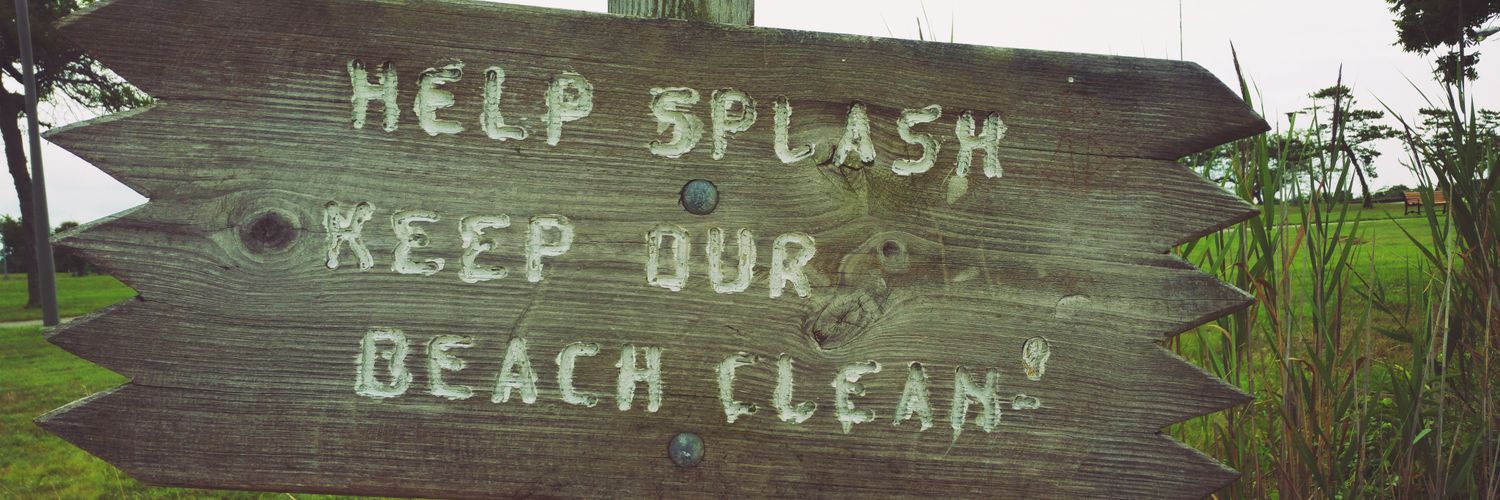 HELP SPLASH
KEEP OUR
BEACH CLEAN!